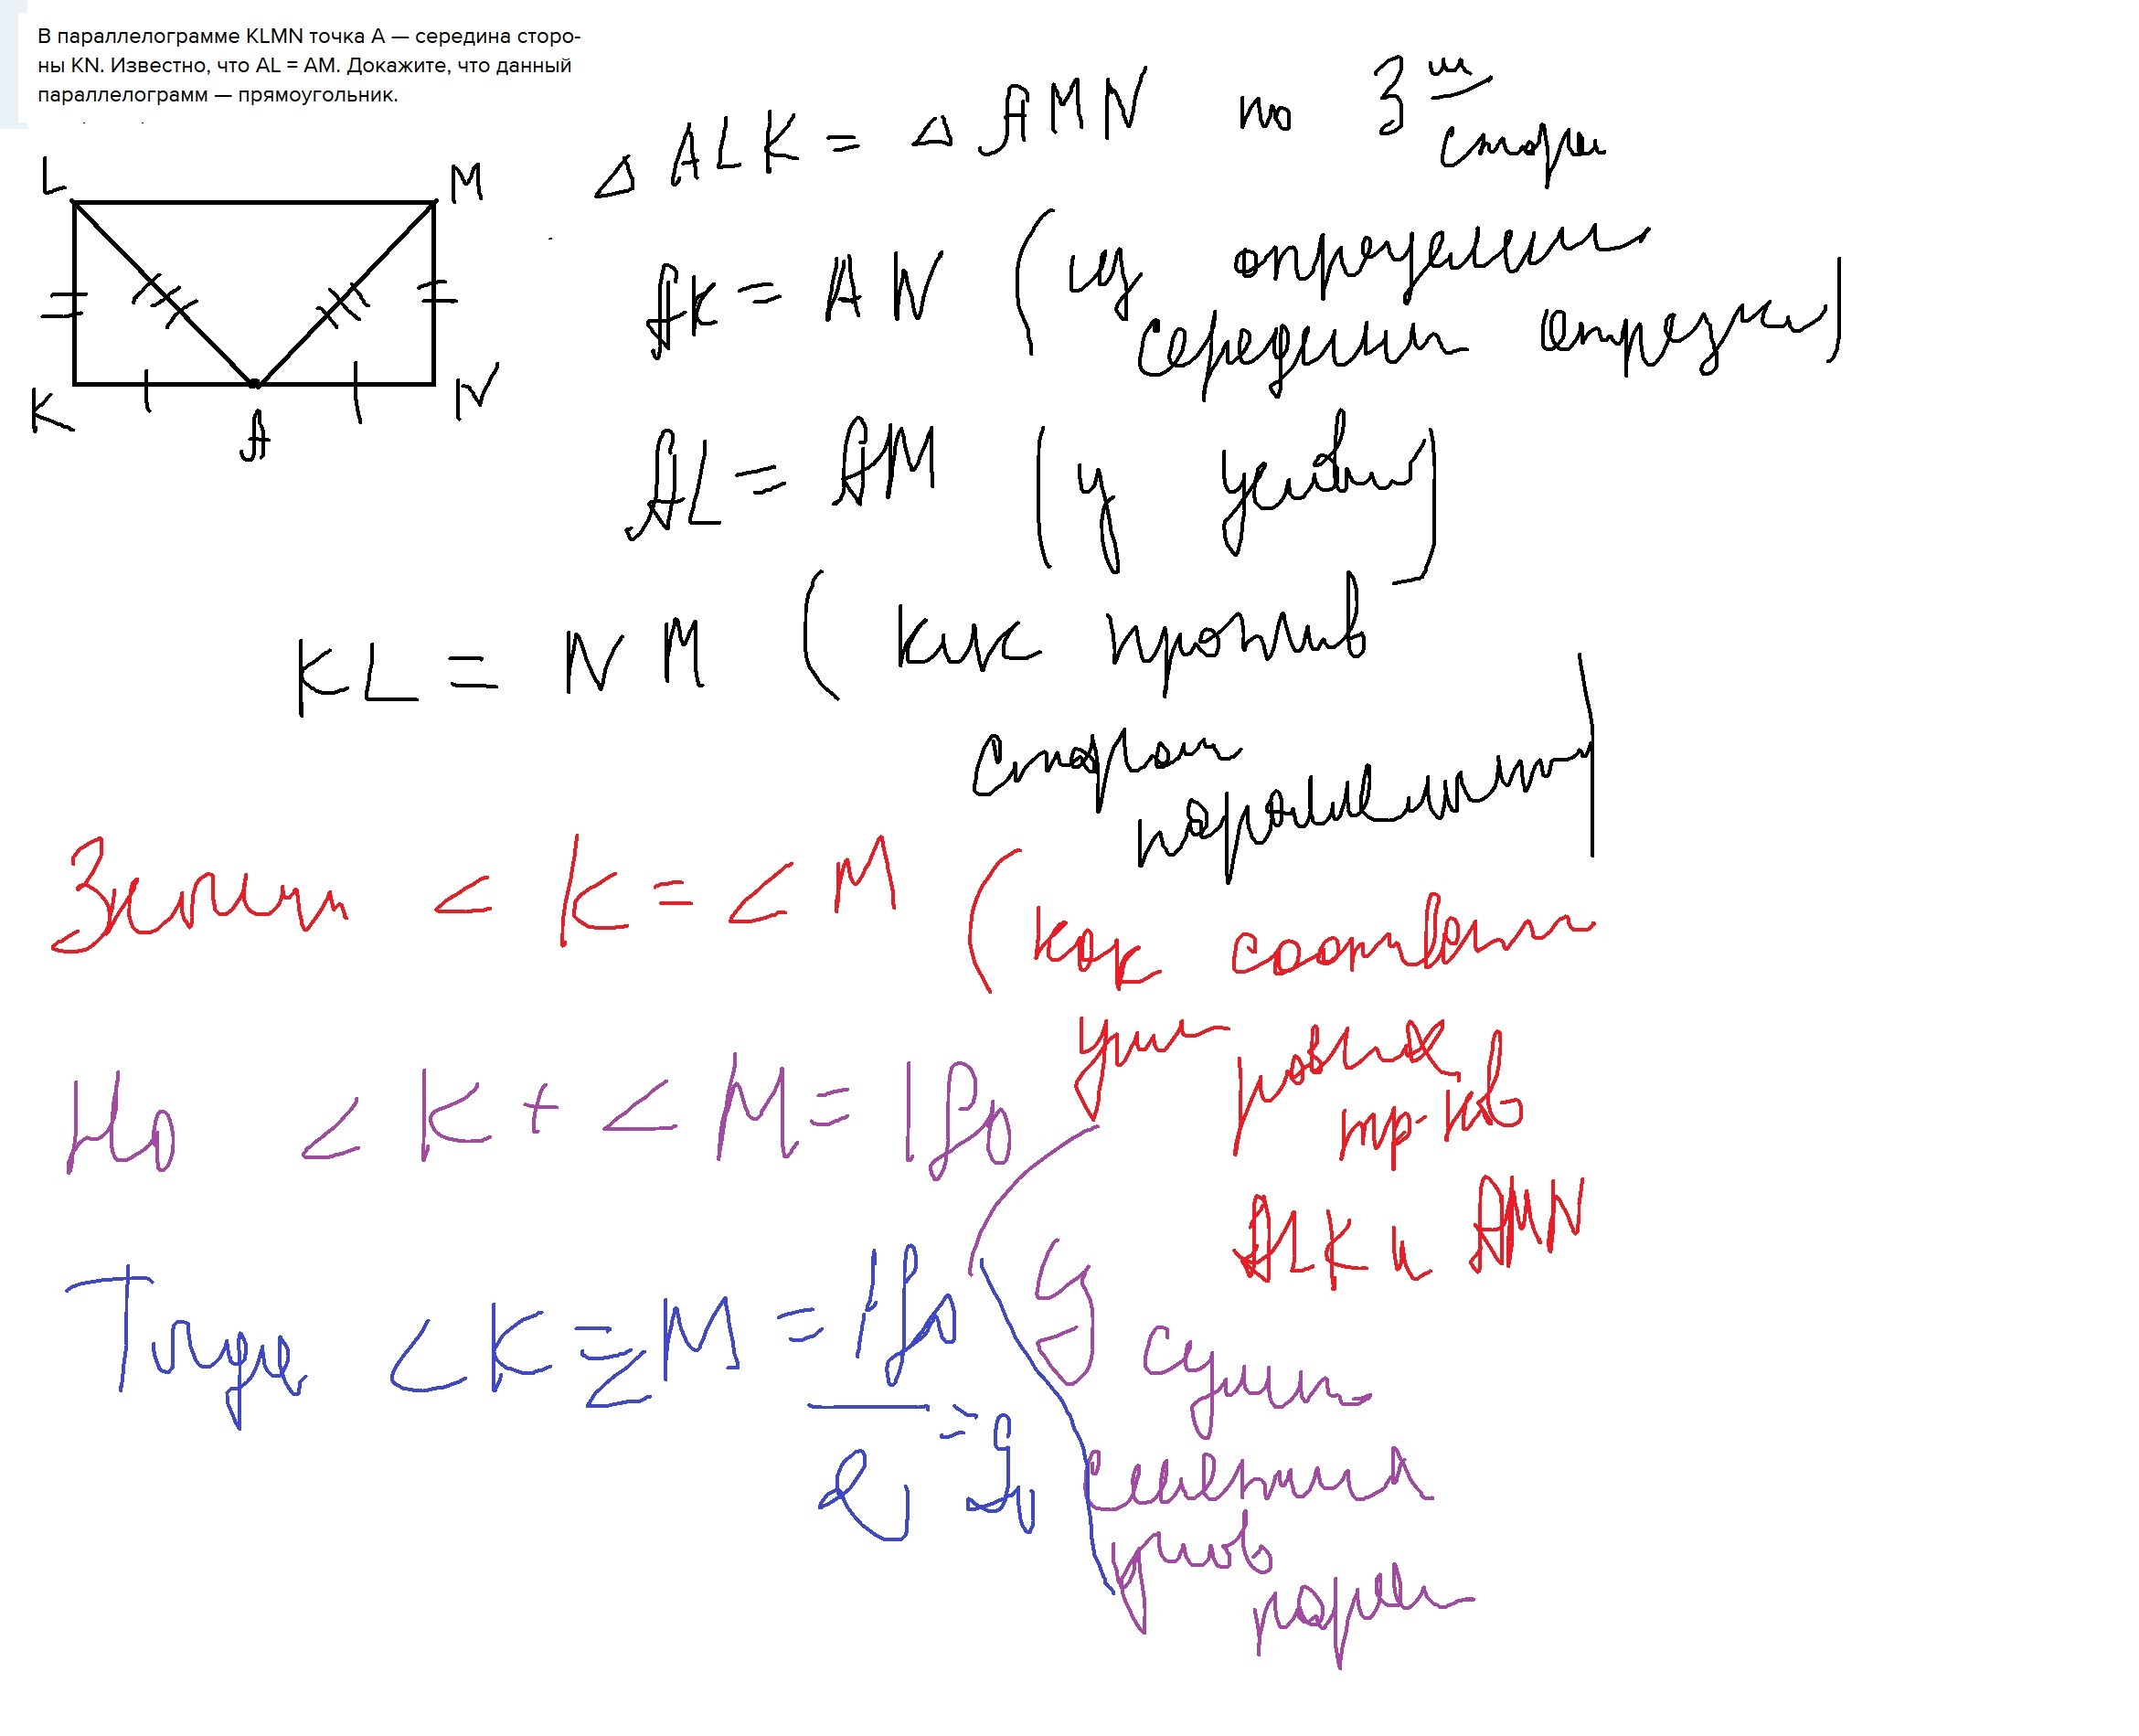 В параллелограмме KLMN точка A — середина сторо-
ны KN. Известно, что AL = AM. Докажите, что данный
параллелограмм — прямоугольник.
L
M
K
A
N
△ ALK = △ AMN по 3 м
стор
AK = AN (из определени
середины отрезка)
AL = AM (
KL = NM (как против
сторон
Значит < K = < M (как соответ
угл равных
тр-ков
ALK и AMN
Но < K + < M = 180
сумм
смежных
углов
парал
Тогда < K = < M = 180
2
= 90